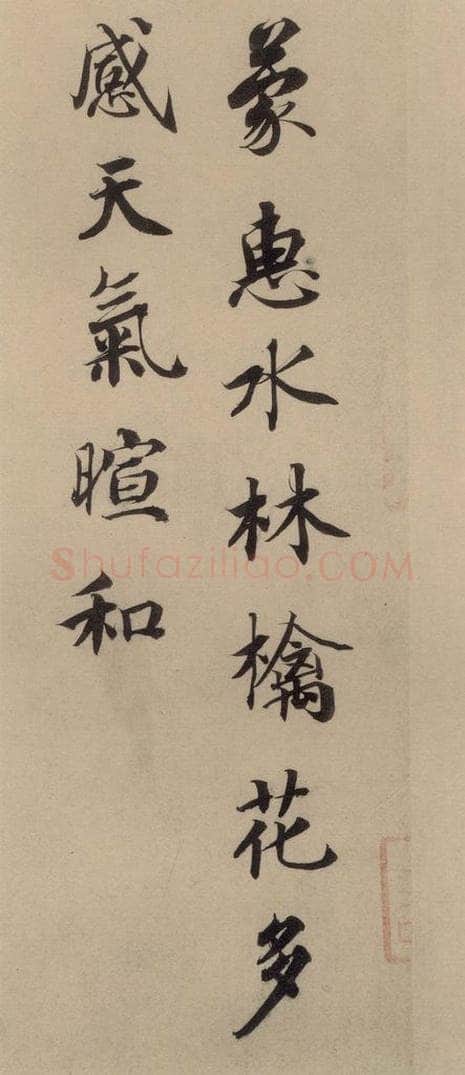 蒙惠水林檎花多
感天氣暄和
Shufaziliao.COM